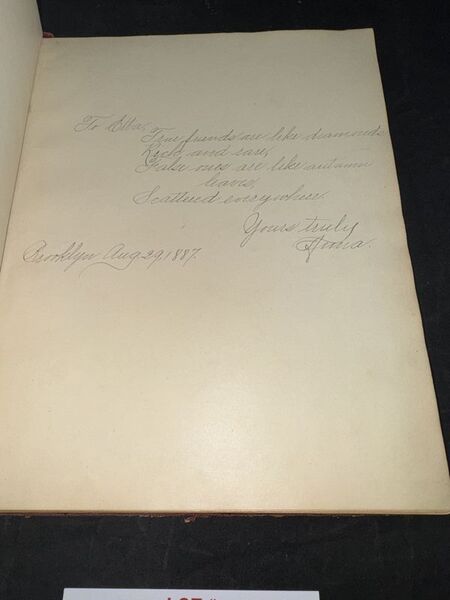 To Etta,
True friends are like diamonds
Rich and rare,
False ones are like autumn
leaves,
Scattered everywhere.
Yours truly
Anna.
Brooklyn Aug. 29, 1887.